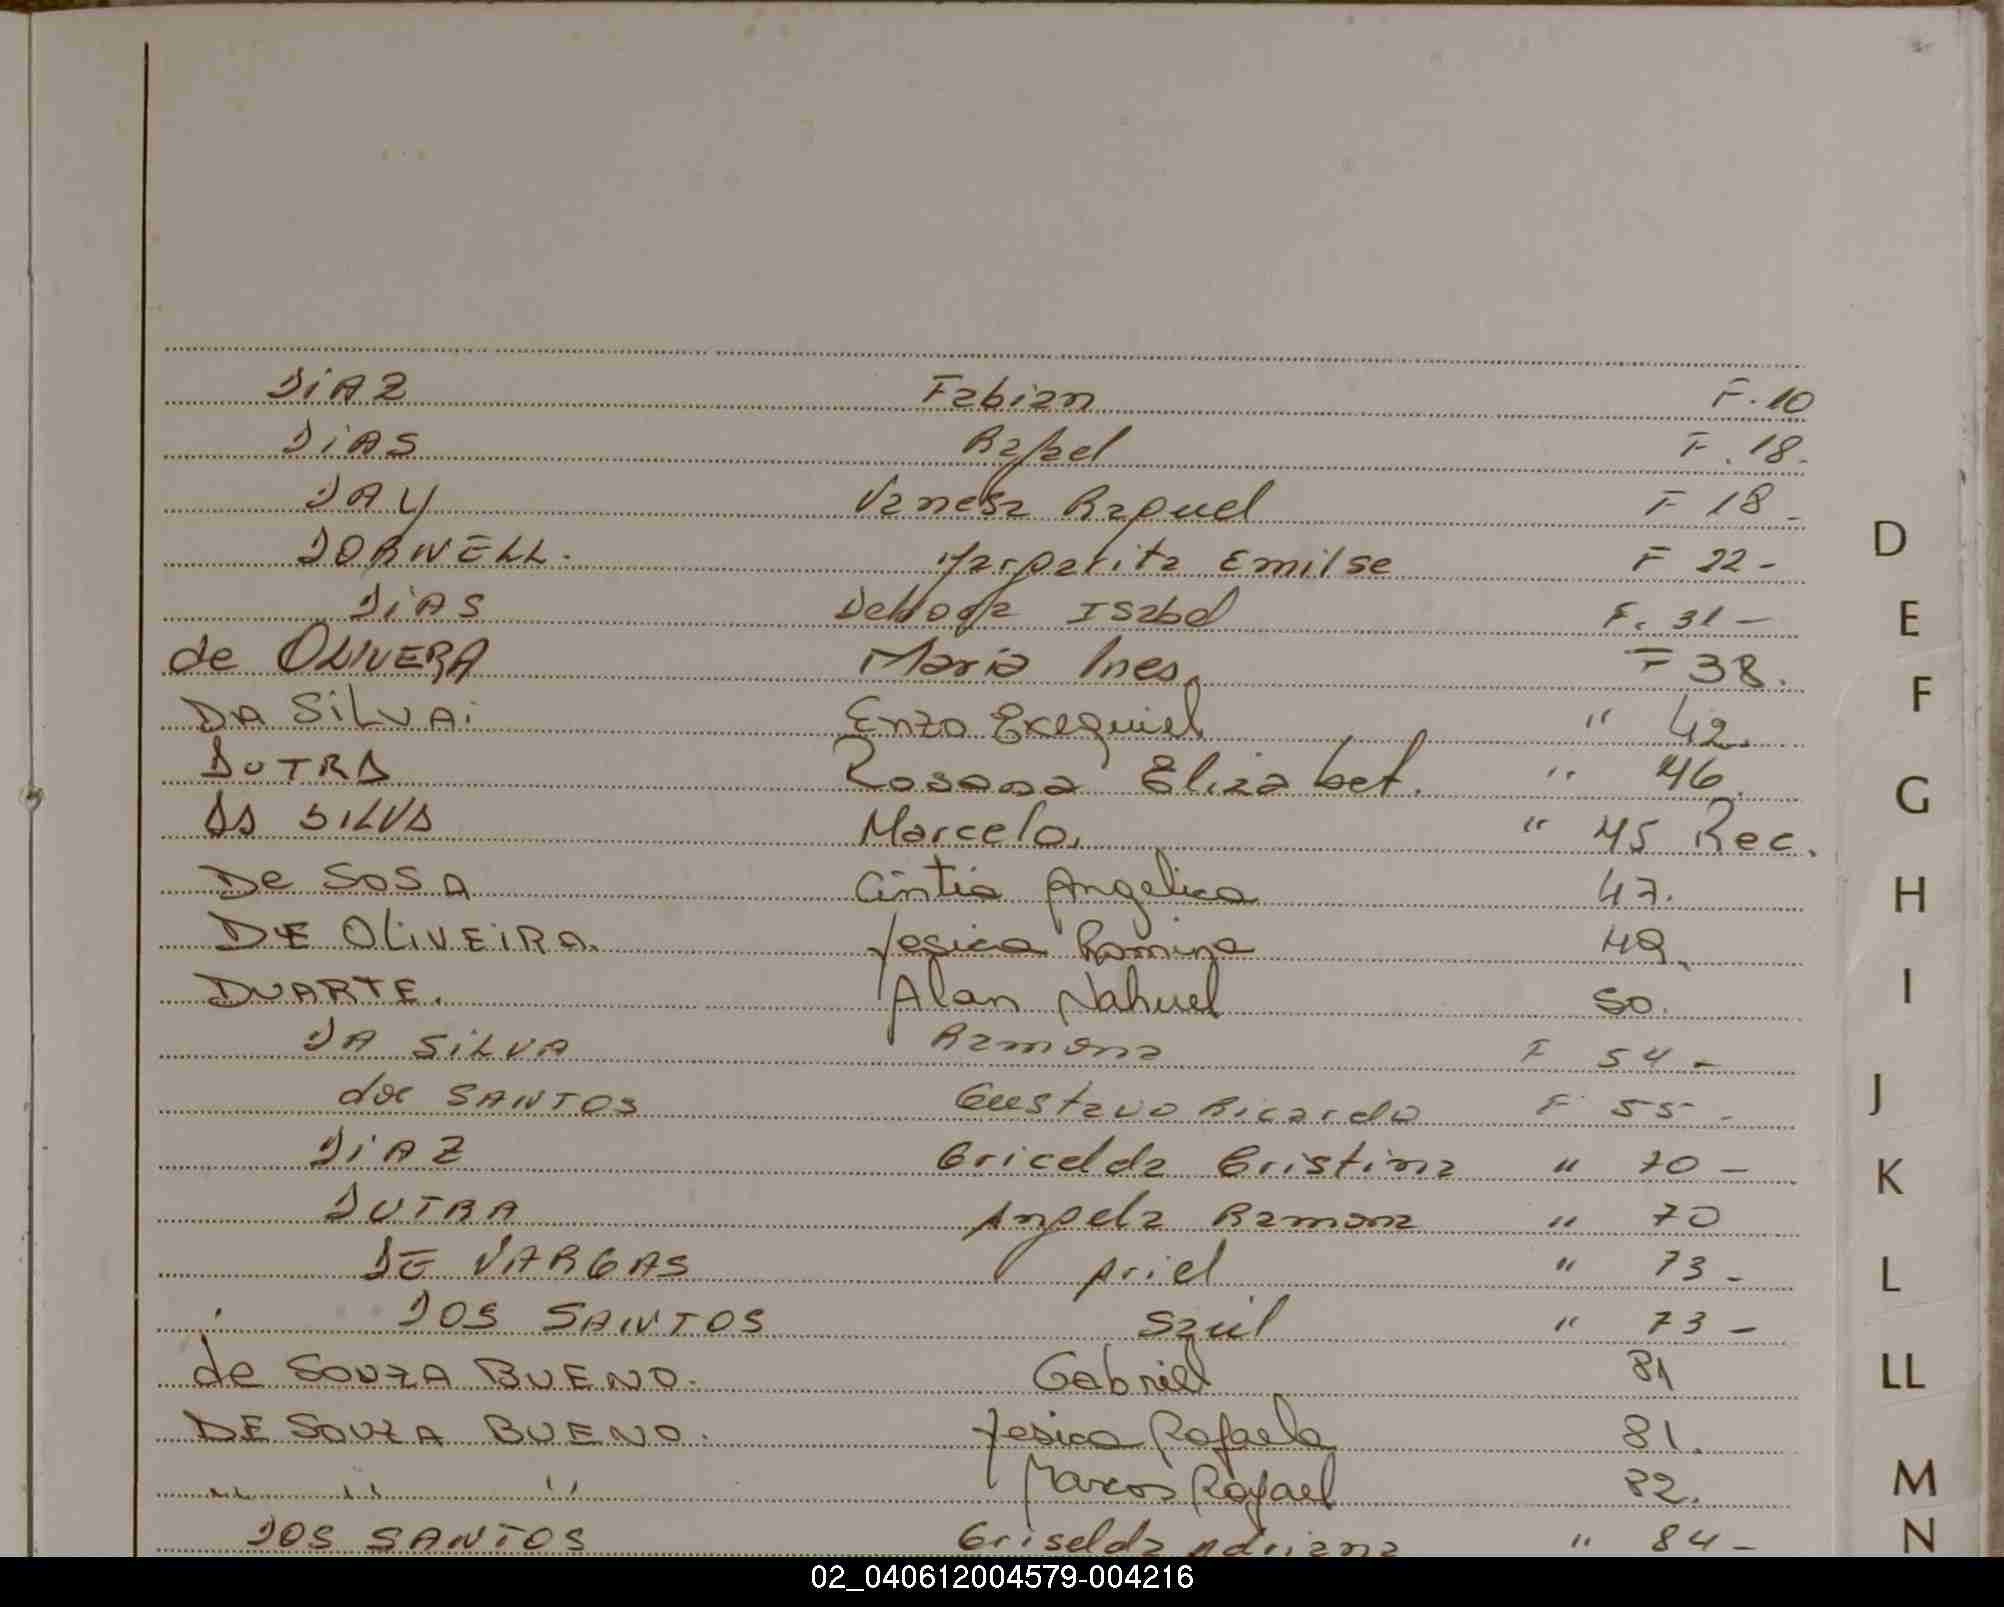 DiAZ Fabian F. 10
DiAS Rafael F. 18.
DAY Vanesa Raquel F 18 -
DORNELL. Margarita Emilse F 22 -
DiAS Debora Isabel F. 31 -
de OLIVERA Maria Ines. F 38.
DA SiLVA. Enzo Exequiel " 42.
DUTRA Rosana Elizabet. " 46.
DA SILVA Marcelo. " 45 Rec.
De SOSA Cintia Angelica 47.
DE OLiVEiRA. Yesica Romina 49.
DUARTE. Alan Nahuel 50.
DA SiLVA Ramona F 54 -
dos SANTOS Gustavo Ricardo F 55 -
DiAZ Gricelda Cristina " 70 -
DUTRA Angela Ramona " 70
DE VARGAS Ariel " 73 -
DOS SANTOS Saul " 73 -
de SOUZA BUENO. Gabriel 81
DE SOUZA BUENO. Yesica Rafaela 81.
" " " Marcos Rafael 82.
DOS SANTOS Griselda Adriana " 84 -
D
E
F
G
H
I
J
K
L
LL
M
N
02_040612004579-004216